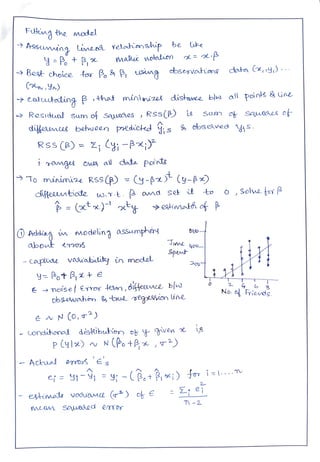 Fitting the model
→ Assuming linear relationship be like
y = β₀ + β₁x matrix notation x = x.β
→ Best choice for β₀ & β₁ using observations data (x₁,y₁) ...
(xₙ, yₙ)
→ calculating β, that minimizes distance b/w all points & line
→ Residual sum of squares, RSS(β) is sum of squares of
difference between predicted ŷᵢs & observed yᵢs.
RSS(β) = Σᵢ (yᵢ - βxᵢ)²
i ranges over all data points
→ To minimize RSS(β) = (y-βx)ᵗ (y-βx)
differentiate w.r.t. β and set it to 0, solve for β
β̂ = (xᵗx)⁻¹ xᵗy → estimate of β
① Adding in modeling assumptions
about errors
- capture variability in model
y = β₀ + β₁x + ε
ε → noise/error term, difference b/w
observation & true regression line
ε ~ N(0, σ²)
Time
Spent
0 2 4 6 8
No. of Friends
- conditional distribution of y given x is
p(y|x) ~ N(β₀+β₁x, σ²)
- Actual errors 'ε's
eᵢ = yᵢ - ŷᵢ = yᵢ - (β₀ + β₁xᵢ) for i = 1....n
- estimate variance (σ²) of ε = Σᵢ eᵢ² / n-2
mean squared error